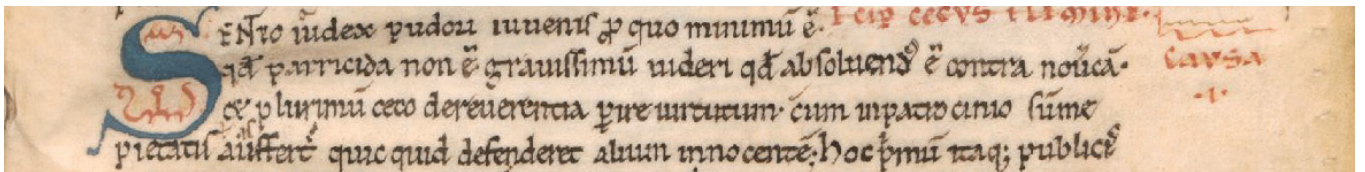 SENTIO iudex pudori iuuenis ꝓ quo minimū ē̄. Īcip cecus ī limine.
qđ parricida non ē grauissimū uideri qđ absoluendꝰ ē contra nou̾cā. causa
Et plurimū ceco dereuerentia ꝑire uirtutum. cum inpatrocinio sūme .I.
pietatis auffert quicquid defenderet alium innocentē; hoc p̄mū itaq; publice